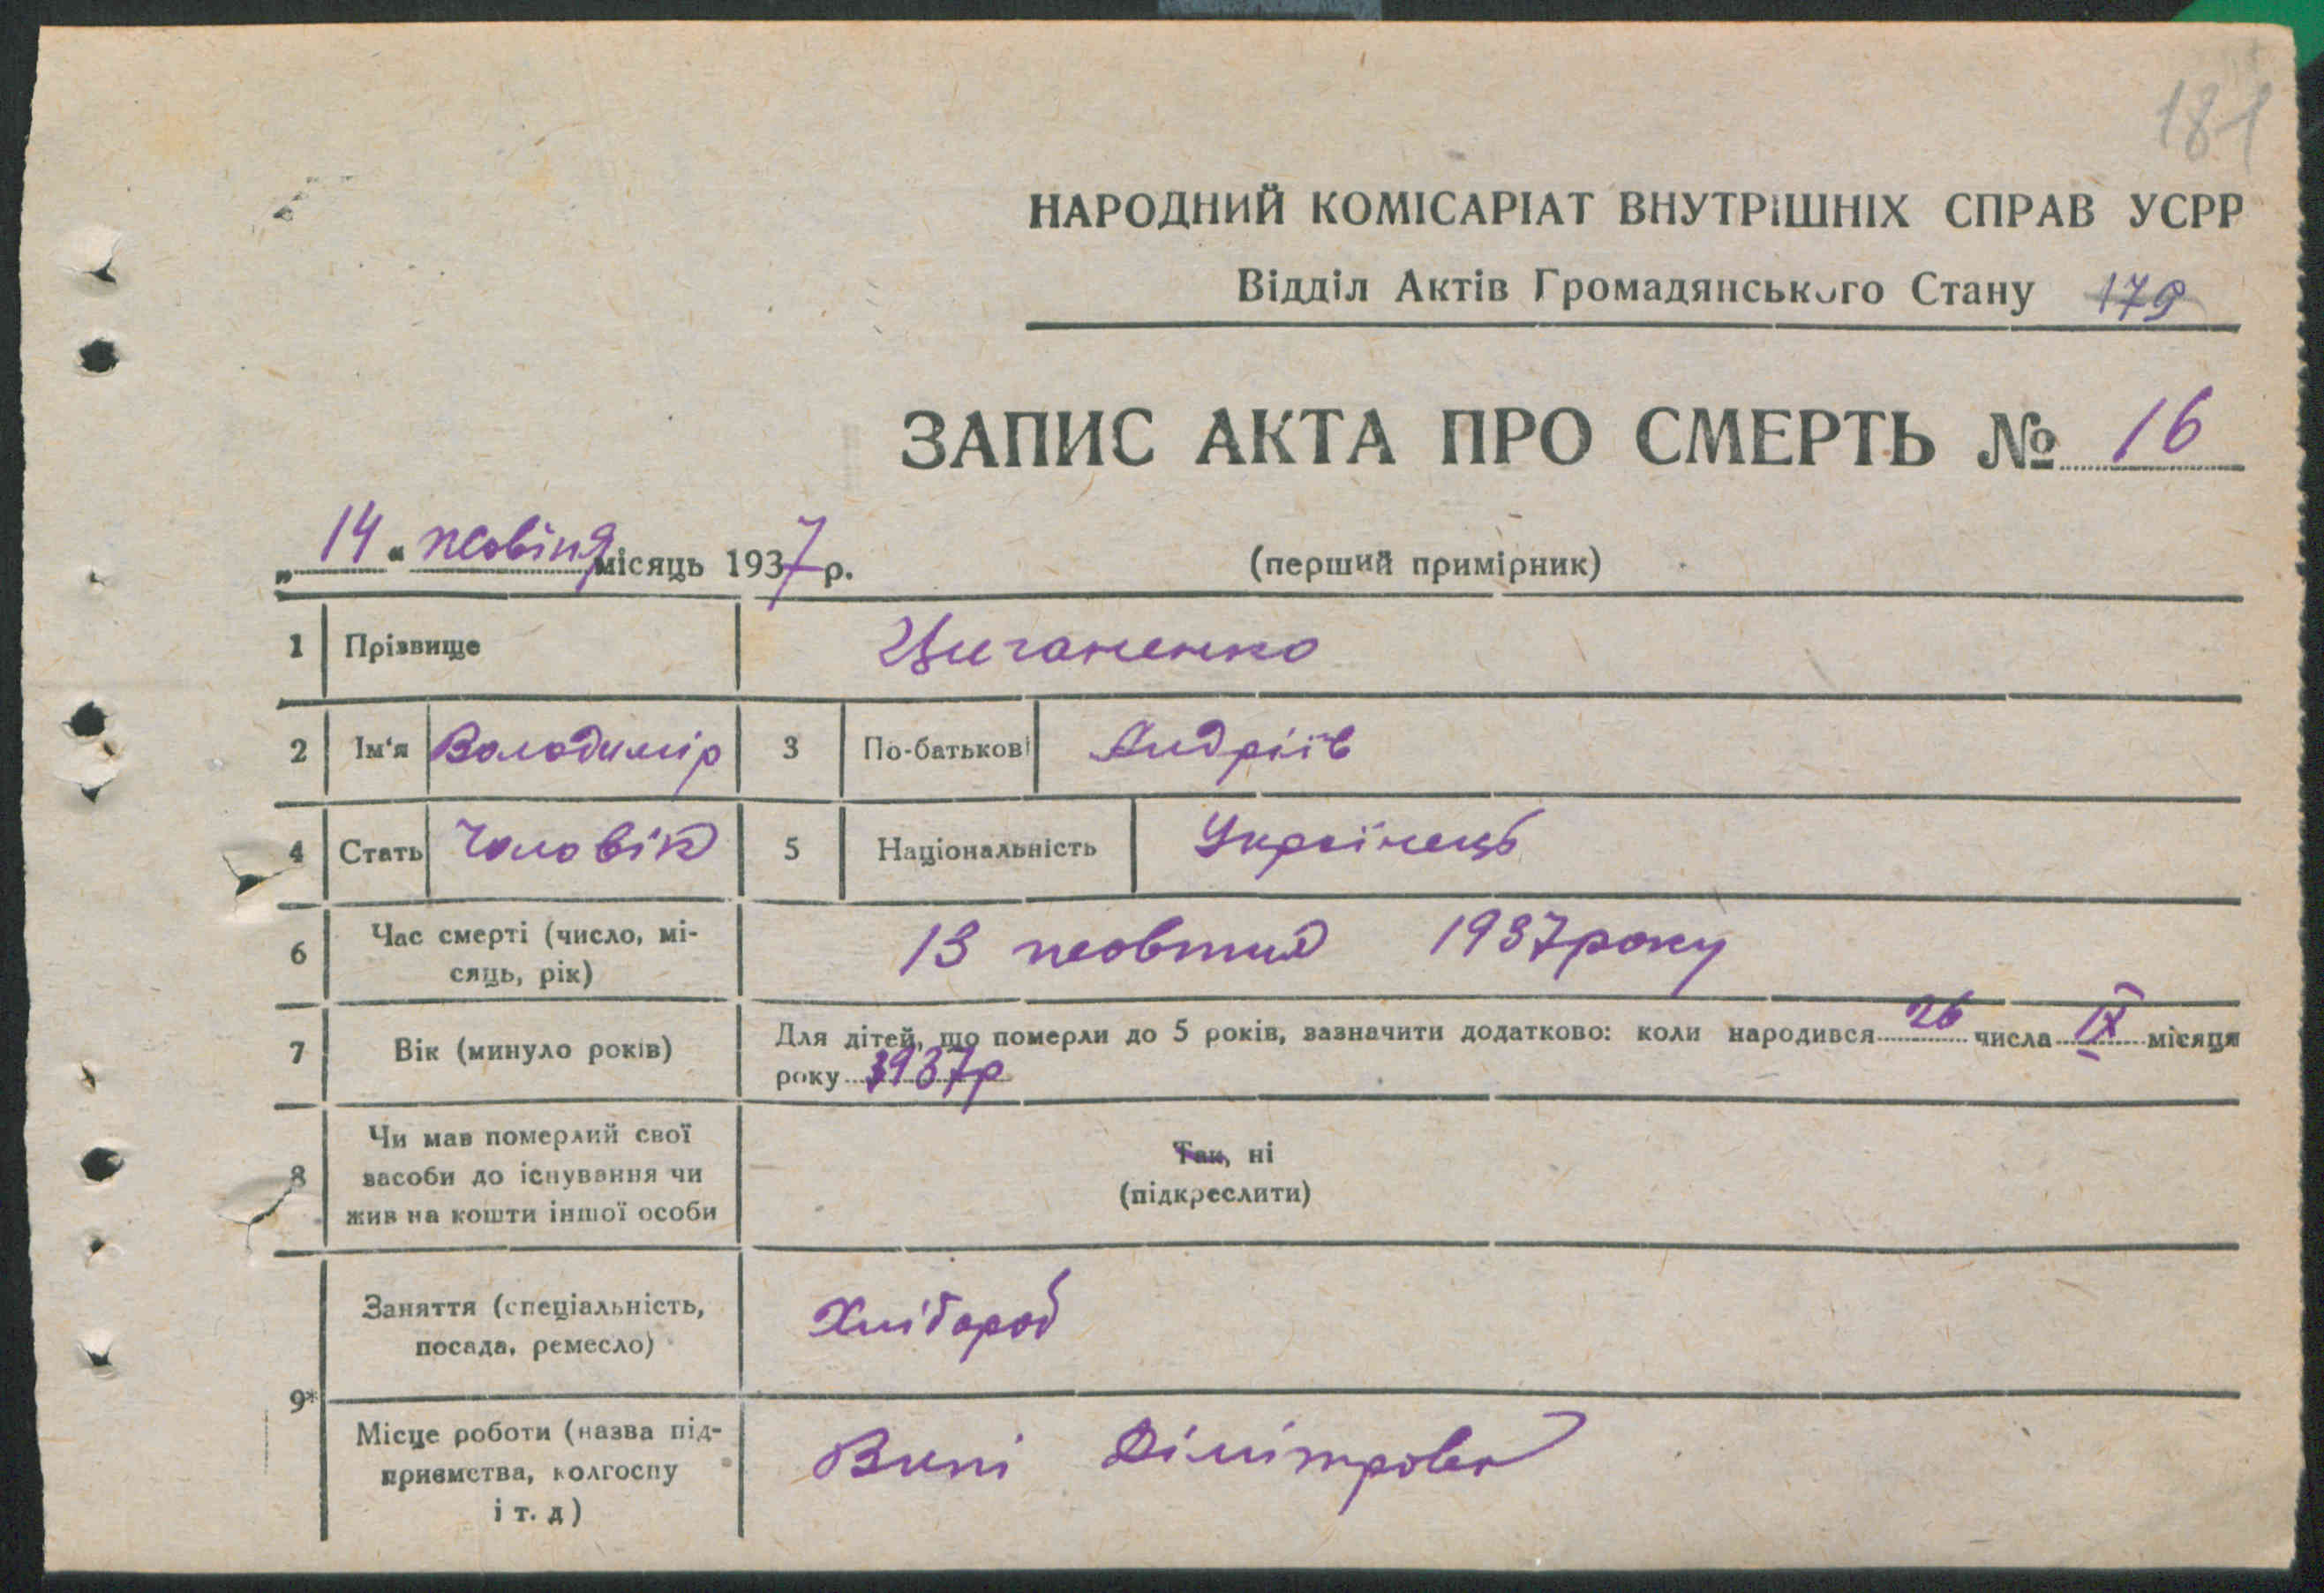 181
НАРОДНИЙ КОМІСАРІАТ ВНУТРІШНІХ СПРАВ УСРР
Відділ Актів Громадянського Стану 179
ЗАПИС АКТА ПРО СМЕРТЬ № 16
„ 14 “ жовтня місяць 1937 р. (перший примірник)
1 Прізвище Циганенко
2 Ім'я Володимір 3 По-батькові Андріїв
4 Стать Чоловік 5 Національність Українець
6 Час смерті (число, мі-
сяць, рік) 13 жовтня 1937 року
7 Вік (минуло років) Для дітей, що померли до 5 років, зазначити додатково: коли народився 26 числа IX місяця
року 1937р
8 Чи мав померлий свої
засоби до існування чи
жив на кошти іншої особи
Так, ні
(підкреслити)
9* Заняття (спеціальність,
посада, ремесло) Хлібороб
Місце роботи (назва під-
приємства, колгоспу
і т. д)
Дімітрова